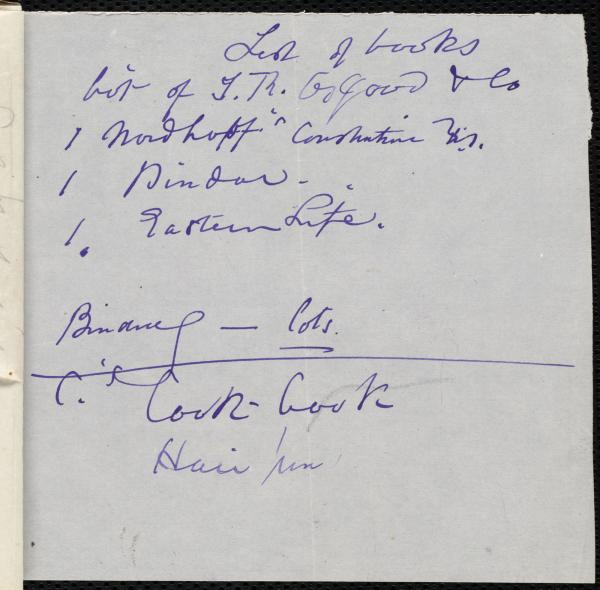 List of books
bôt of J. R. Osgood & Co
1 Nordhoff's Communistic
1 Pindar.
1. Eastern Life.
Binding — Cots.
C.'s Cook-book
Hair pin